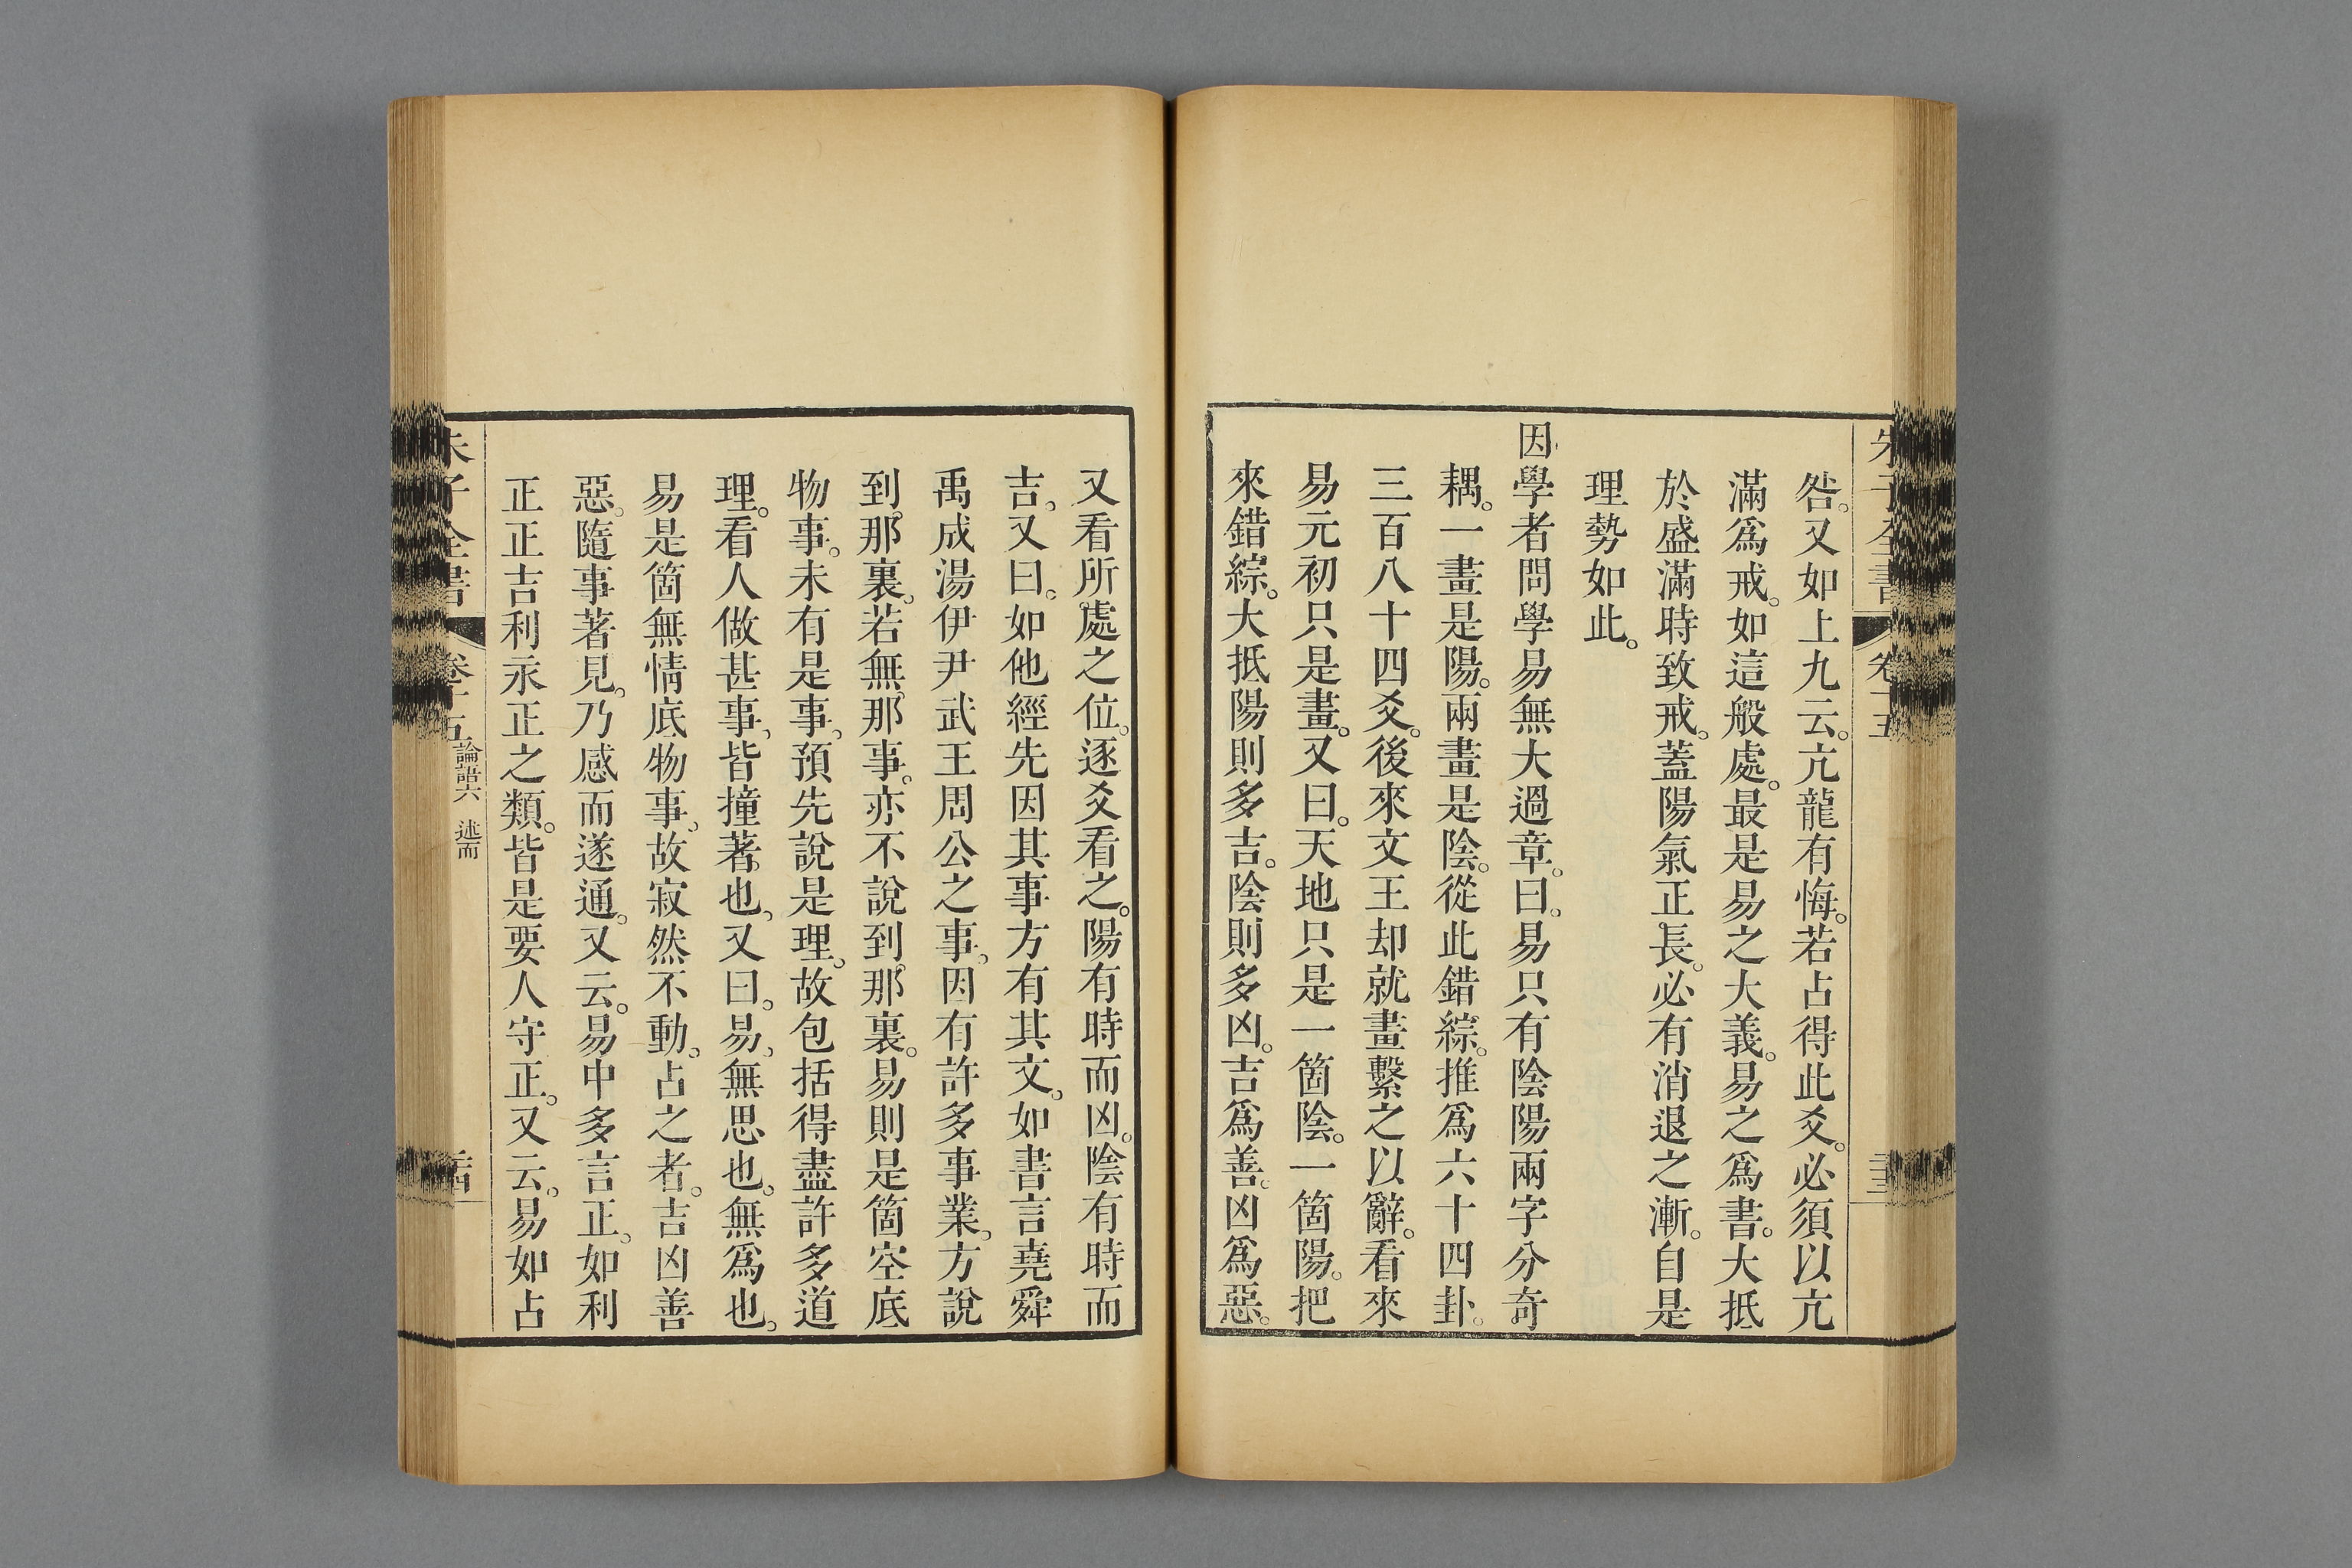 咎。又如上九云。亢龍有悔。若占得此爻。必須以亢
滿爲戒。如這般處。最是易之大義。易之爲書。大抵
於盛滿時致戒。蓋陽氣正長。必有消退之漸。自是
理勢如此。
因學者問學易無大過章。曰。易只有陰陽兩字分奇
耦。一畫是陽。兩畫是陰。從此錯綜。推爲六十四卦。
三百八十四爻。後來文王却就畫繫之以辭。看來
易元初只是畫。又曰。天地只是一箇陰。一箇陽。把
來錯綜。大抵陽則多吉。陰則多凶。吉爲善。凶爲惡。
又看所處之位。逐爻看之。陽有時而凶。陰有時而
吉。又曰。如他經先因其事方有其文。如書言堯舜
禹成湯伊尹武王周公之事。因有許多事業。方說
到那裏。若無那事。亦不說到那裏。易則是箇空底
物事。未有是事。預先說是理。故包括得盡許多道
理。看人做甚事。皆撞著也。又曰。易無思也。無爲也。
易是箇無情底物事。故寂然不動。占之者。吉凶善
惡。隨事著見。乃感而遂通。又云。易中多言正。如利
正正吉利永正之類。皆是要人守正。又云。易如占
朱子全書 卷十五 論語六 述而